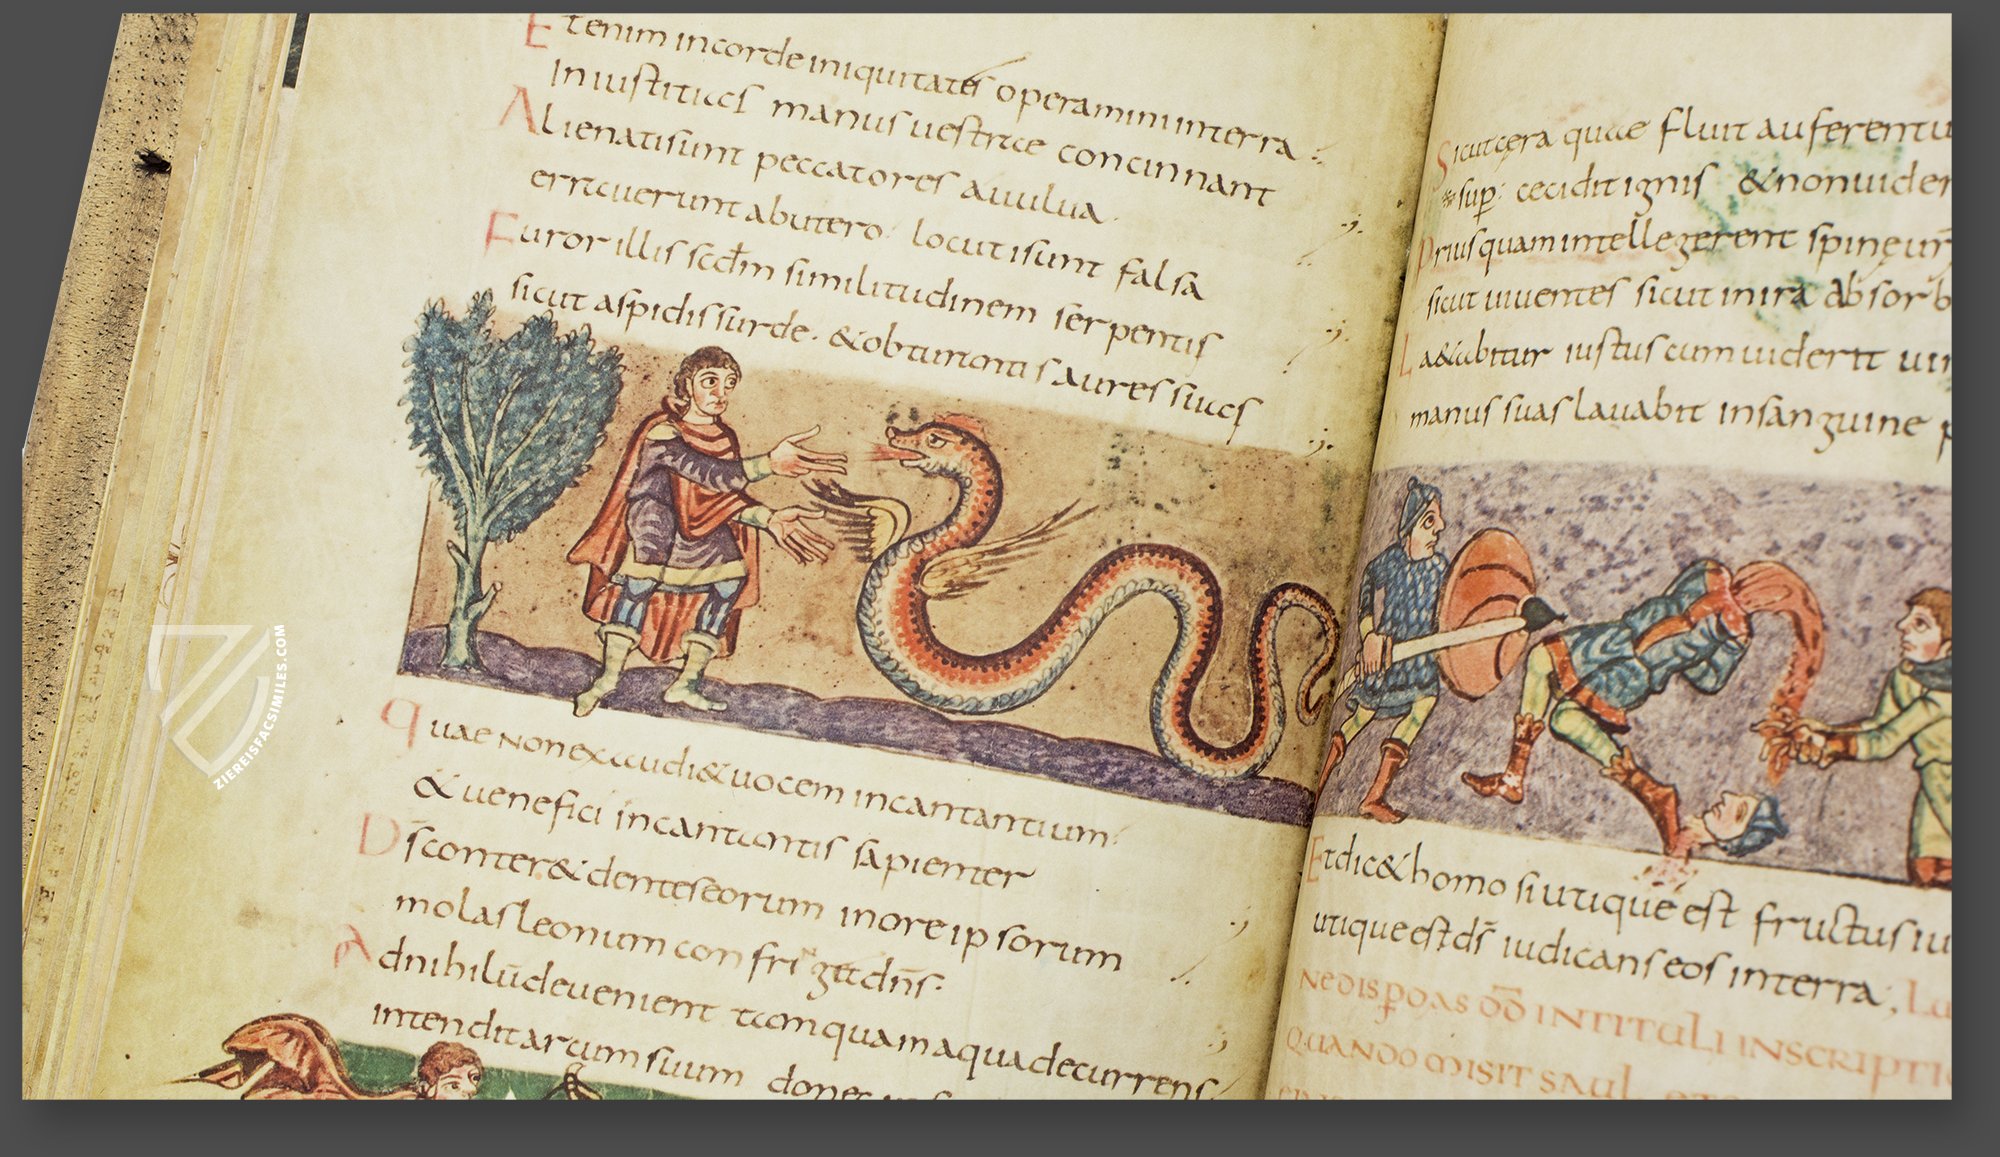 Etenim incorde iniquitates operamini interra
Iniustitias manus uestrae concinnant
Alienatisunt peccatores auulua
erraueruntabutero locutisunt falsa
Furor illis scdm similitudinem serpentis
sicut aspidis surde &obturantis aures suas
Quae nonexaudi& uocem incantantium
& uenefici incantantis sapienter
Ds conter& dentes eorum inore ipsorum
molas leonum confrig& dns
Adnihilū deuenient tamquam aqua decurrens
intendit arcum suum donec
Sicut cera quae fluit auferentu
sup cecidit ignis & nonuider
Priusquam intellegerent spine ur
sicut uiuentes sicut inira absorb
Laetabitur iustus cum uiderit uin
manus suas lauabit insanguine p
Etdic& homo siutique est fructus iu
utique est ds iudicans eos interra Lu
NE DISPDAS DD IN TITULI INSCRIPTI
QUANDO MISIT SAUL
ZIEREISFACSIMILES.COM